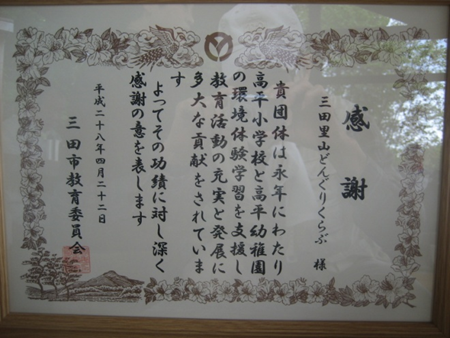 感謝
三田里山どんぐりくらぶ 様
貴団体は永年にわたり
高平小学校と高平幼稚園
の環境体験学習を支援し
教育活動の充実と発展に
多大な貢献をされていま
す
よってその功績に対し深く
感謝の意を表します
平成二十八年四月二十二日
三田市教育委員会